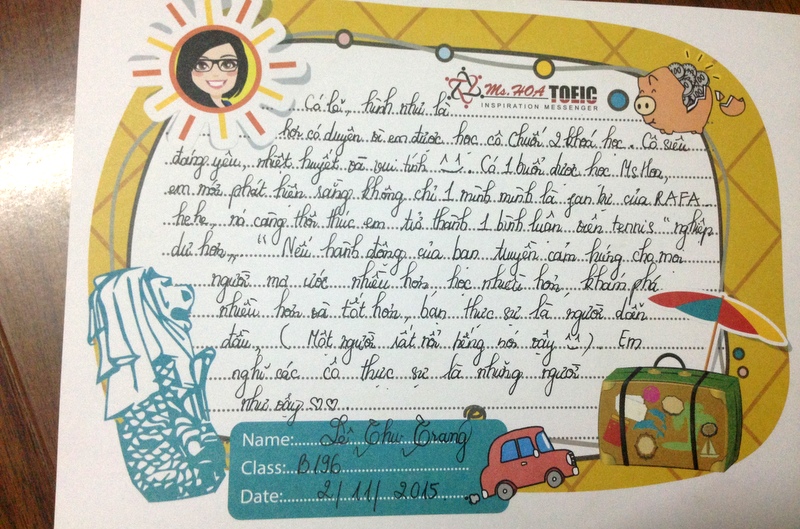 Ms. HOA TOEIC
INSPIRATION MESSENGER
... Có lẽ, hình như là
hơi có duyên vì em được học cô chuỗi 2 khoá học. Cô siêu
đáng yêu, nhiệt huyết và vui tính ^^. Có 1 buổi được học Ms Hoa,
em mới phát hiện rằng không chỉ 1 mình mình là fan kì của RAFA
hehe, nó càng thôi thúc em trở thành 1 bình luận viên tennis "nghiệp
dư hơn" "Nếu hành động của bạn truyền cảm hứng cho mọi
người mơ ước nhiều hơn học nhiều hơn, khám phá
nhiều hơn và tốt hơn, bạn thực sự là người dẫn
đầu" ( Một người rất nổi tiếng nói vậy ^^ ) Em
nghĩ các cô thực sự là những người
như vậy ♡♡
Name: Lê Thu Trang
Class: B196
Date: 2/11/2015